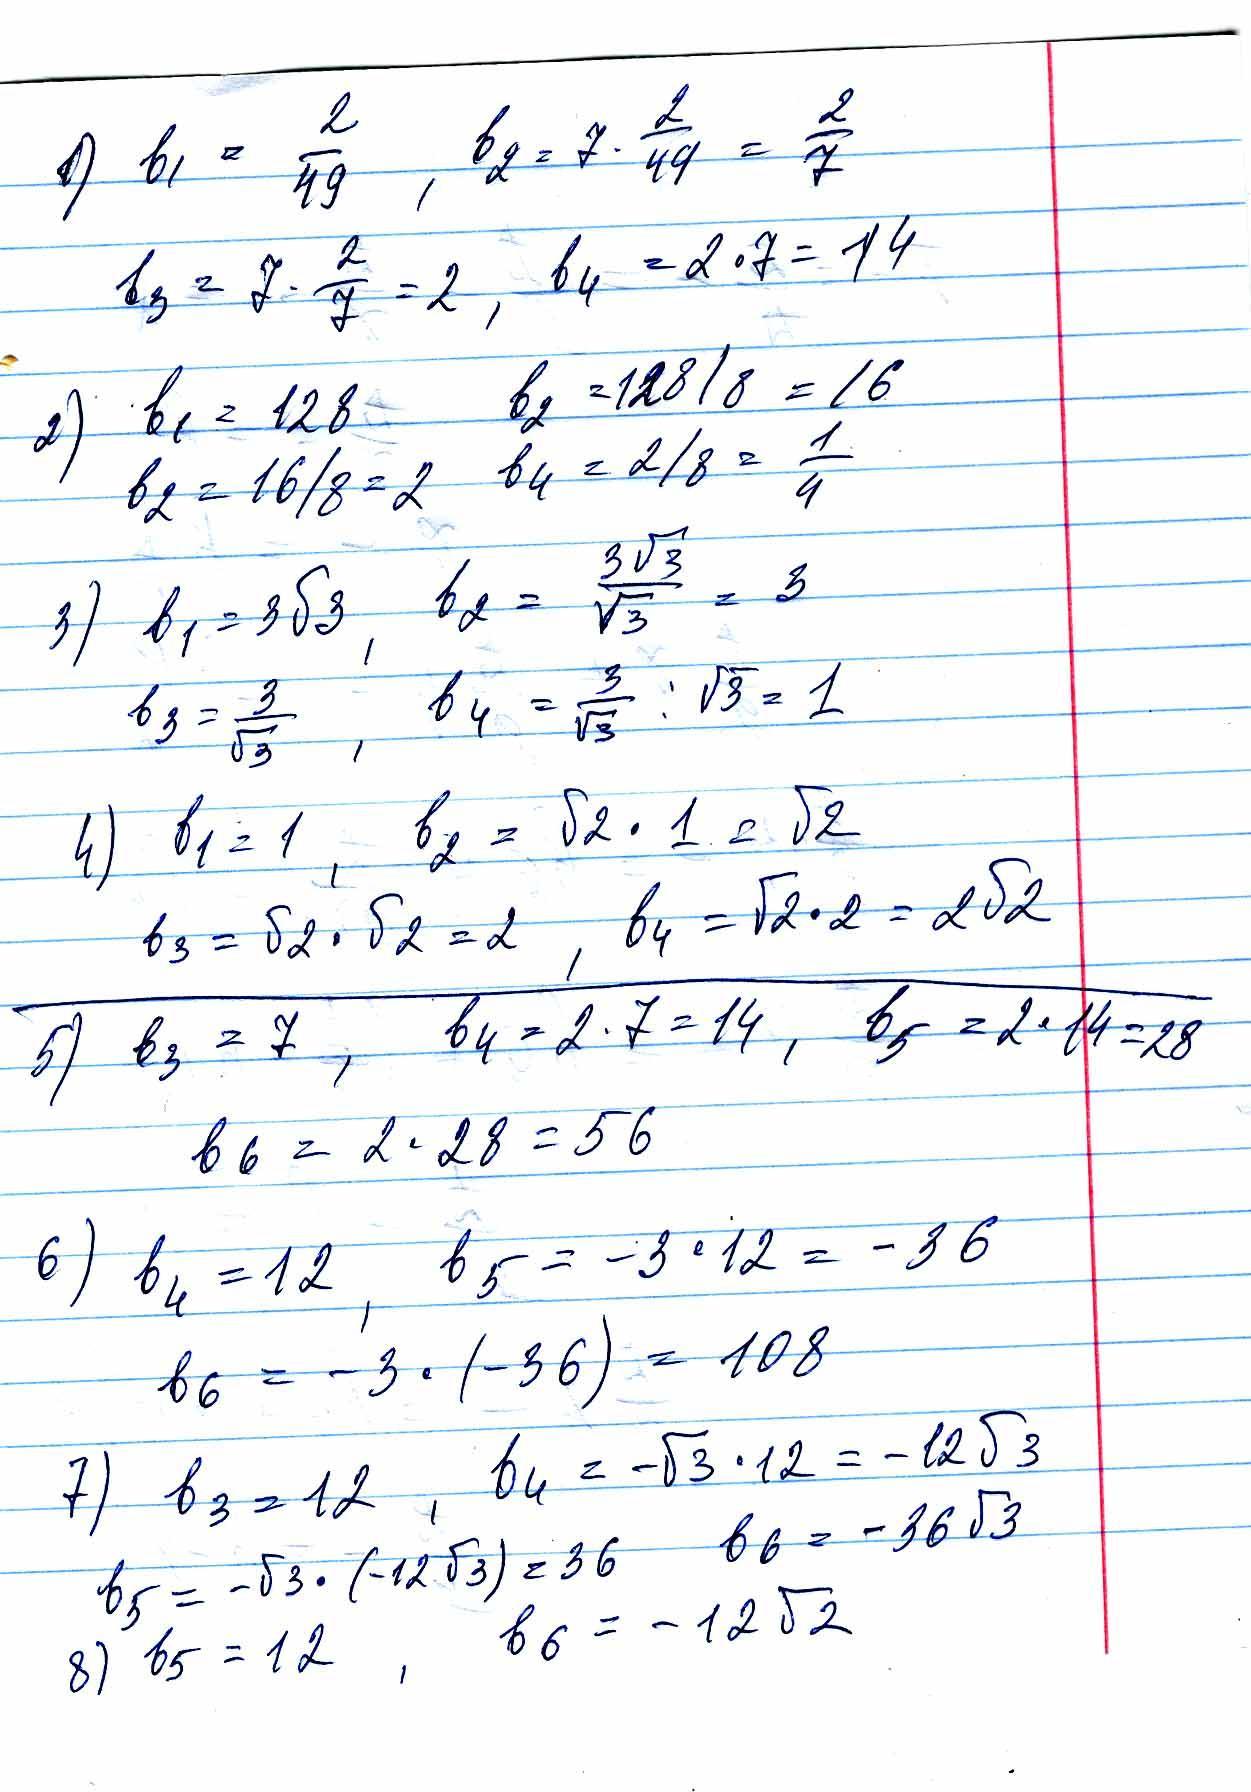 1) b₁ = 2/49, b₂ = 7 · 2/49 = 2/7
b₃ = 7 · 2/7 = 2, b₄ = 2 · 7 = 14
2) b₁ = 128 b₂ = 128/8 = 16
b₂ = 16/8 = 2 b₄ = 2/8 = 1/4
3) b₁ = 3√3, b₂ = 3√3/√3 = 3
b₃ = 3/√3, b₄ = 3/√3 : √3 = 1
4) b₁ = 1, b₂ = √2 · 1 = √2
b₃ = √2 · √2 = 2, b₄ = √2 · 2 = 2√2
5) b₃ = 7, b₄ = 2 · 7 = 14, b₅ = 2 · 14 = 28
b₆ = 2 · 28 = 56
6) b₄ = 12, b₅ = -3 · 12 = -36
b₆ = -3 · (-36) = 108
7) b₃ = 12, b₄ = -√3 · 12 = -12√3
b₅ = -√3 · (-12√3) = 36 b₆ = -36√3
8) b₅ = 12, b₆ = -12√2